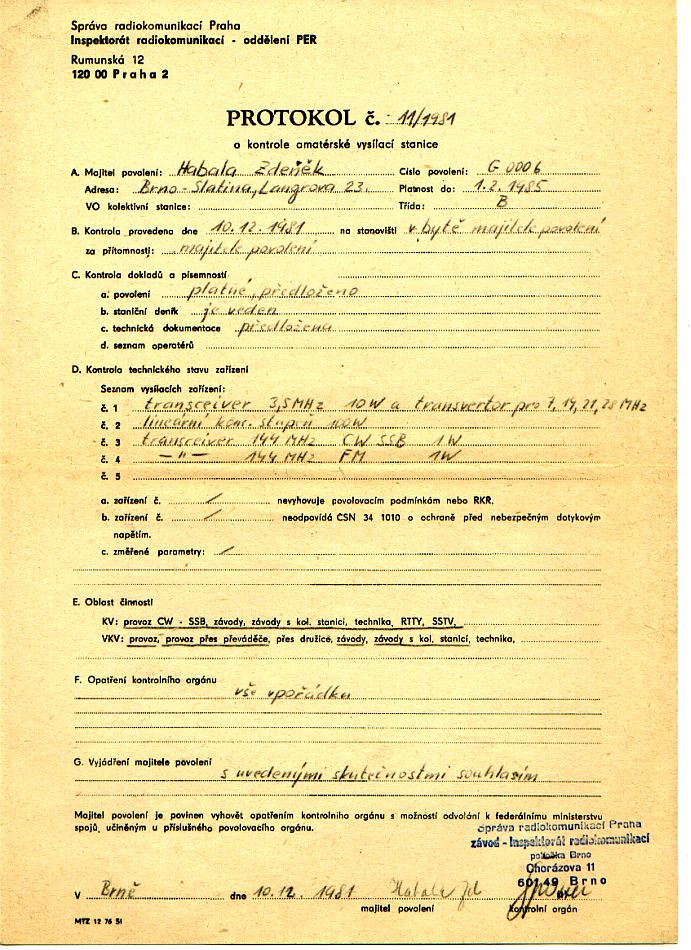 Správa radiokomunikací Praha
Inspektorát radiokomunikací - oddělení PER
Rumunská 12
120 00 Praha 2
PROTOKOL č. 11/1981
o kontrole amatérské vysílací stanice
A. Majitel povolení: Habala Zdeněk Číslo povolení: G 0006
Adresa: Brno - Slatina, Langrova 23. Platnost do: 1.2.1985
VO kolektivní stanice: Třída: B
B. Kontrola provedena dne 10.12.1981 na stanovišti v bytě majitele povolení
za přítomnosti: majitele povolení
C. Kontrola dokladů a písemností
a. povolení platné, předloženo
b. staniční deník je veden
c. technická dokumentace předložena
d. seznam operatérů
D. Kontrola technického stavu zařízení
Seznam vysílacích zařízení:
č. 1 transceiver 3,5MHz 10W a transvertor pro 7, 14, 21, 28 MHz
č. 2 lineární konc. stupeň 100W
č. 3 transceiver 144 MHz CW SSB 1W
č. 4 — " — 144 MHz FM 1W
č. 5
a. zařízení č. / nevyhovuje povolovacím podmínkám nebo RKR.
b. zařízení č. / neodpovídá ČSN 34 1010 o ochraně před nebezpečným dotykovým
napětím.
c. změřené parametry: /
E. Oblast činnosti
KV: provoz CW - SSB, závody, závody s kol. stanicí, technika, RTTY, SSTV,
VKV: provoz, provoz přes převáděče, přes družice, závody, závody s kol. stanicí, technika,
F. Opatření kontrolního orgánu
vše v pořádku
G. Vyjádření majitele povolení
s uvedenými skutečnostmi souhlasím
Majitel povolení je povinen vyhovět opatřením kontrolního orgánu s možností odvolání k federálnímu ministerstvu
spojů, učiněným u příslušného povolovacího orgánu.
Správa radiokomunikací Praha
závod - Inspektorát radiokomunikací
pobočka Brno
Ohorázova 11
601 49 Brno
V Brně dne 10.12.1981 Habala Zd
majitel povolení kontrolní orgán
MTZ 12 76 51